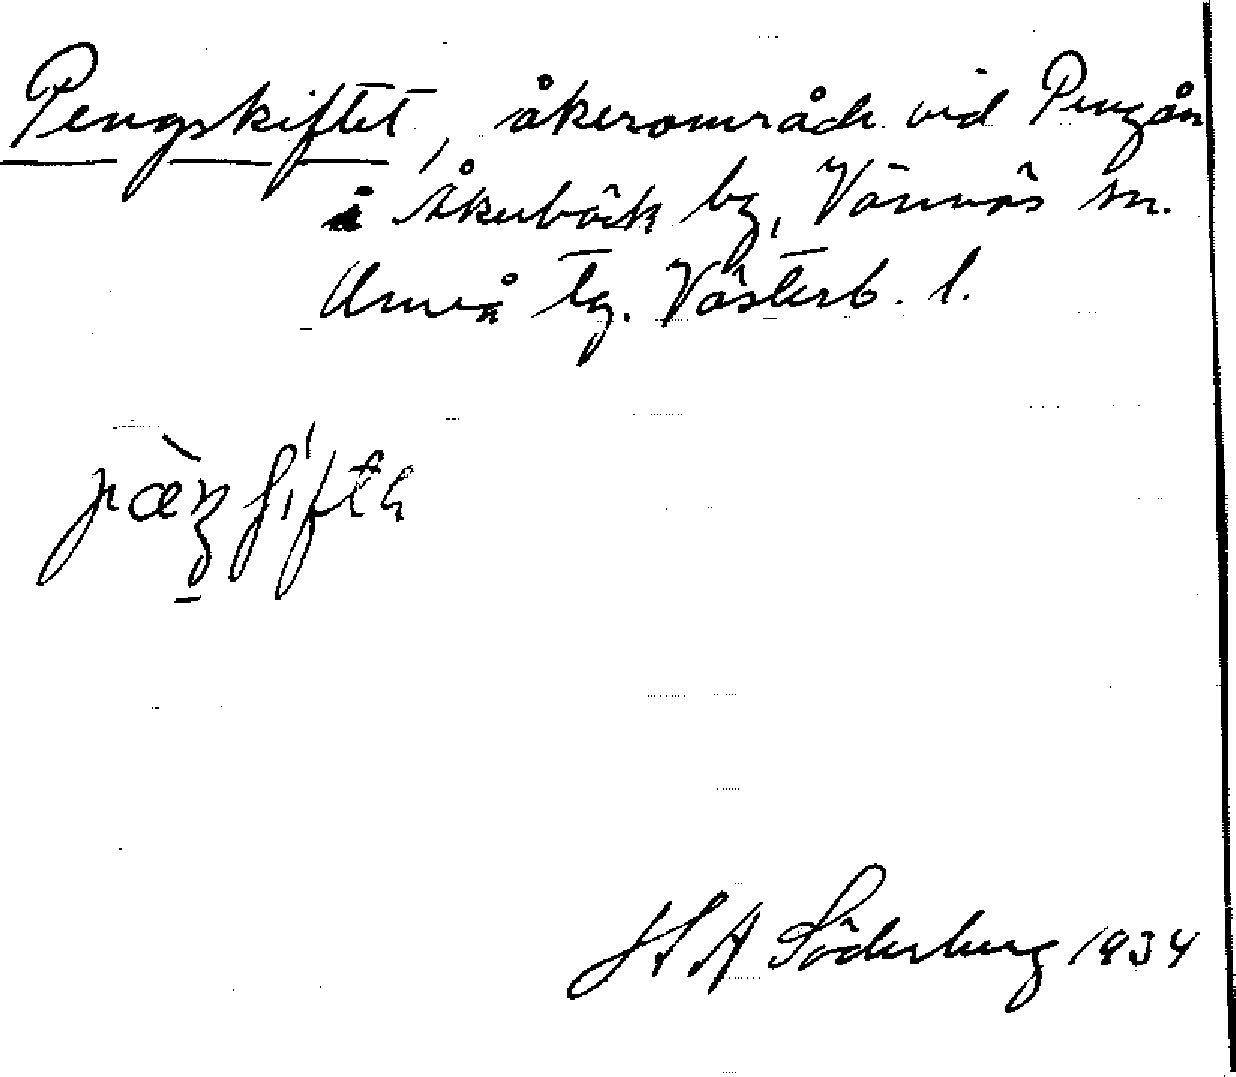 Pengskiftet, åkerområde vid Pengån
i Åkerbäck by, Vännäs sn.
Umeå tg. Västerb. l.
H A Söderberg 1934